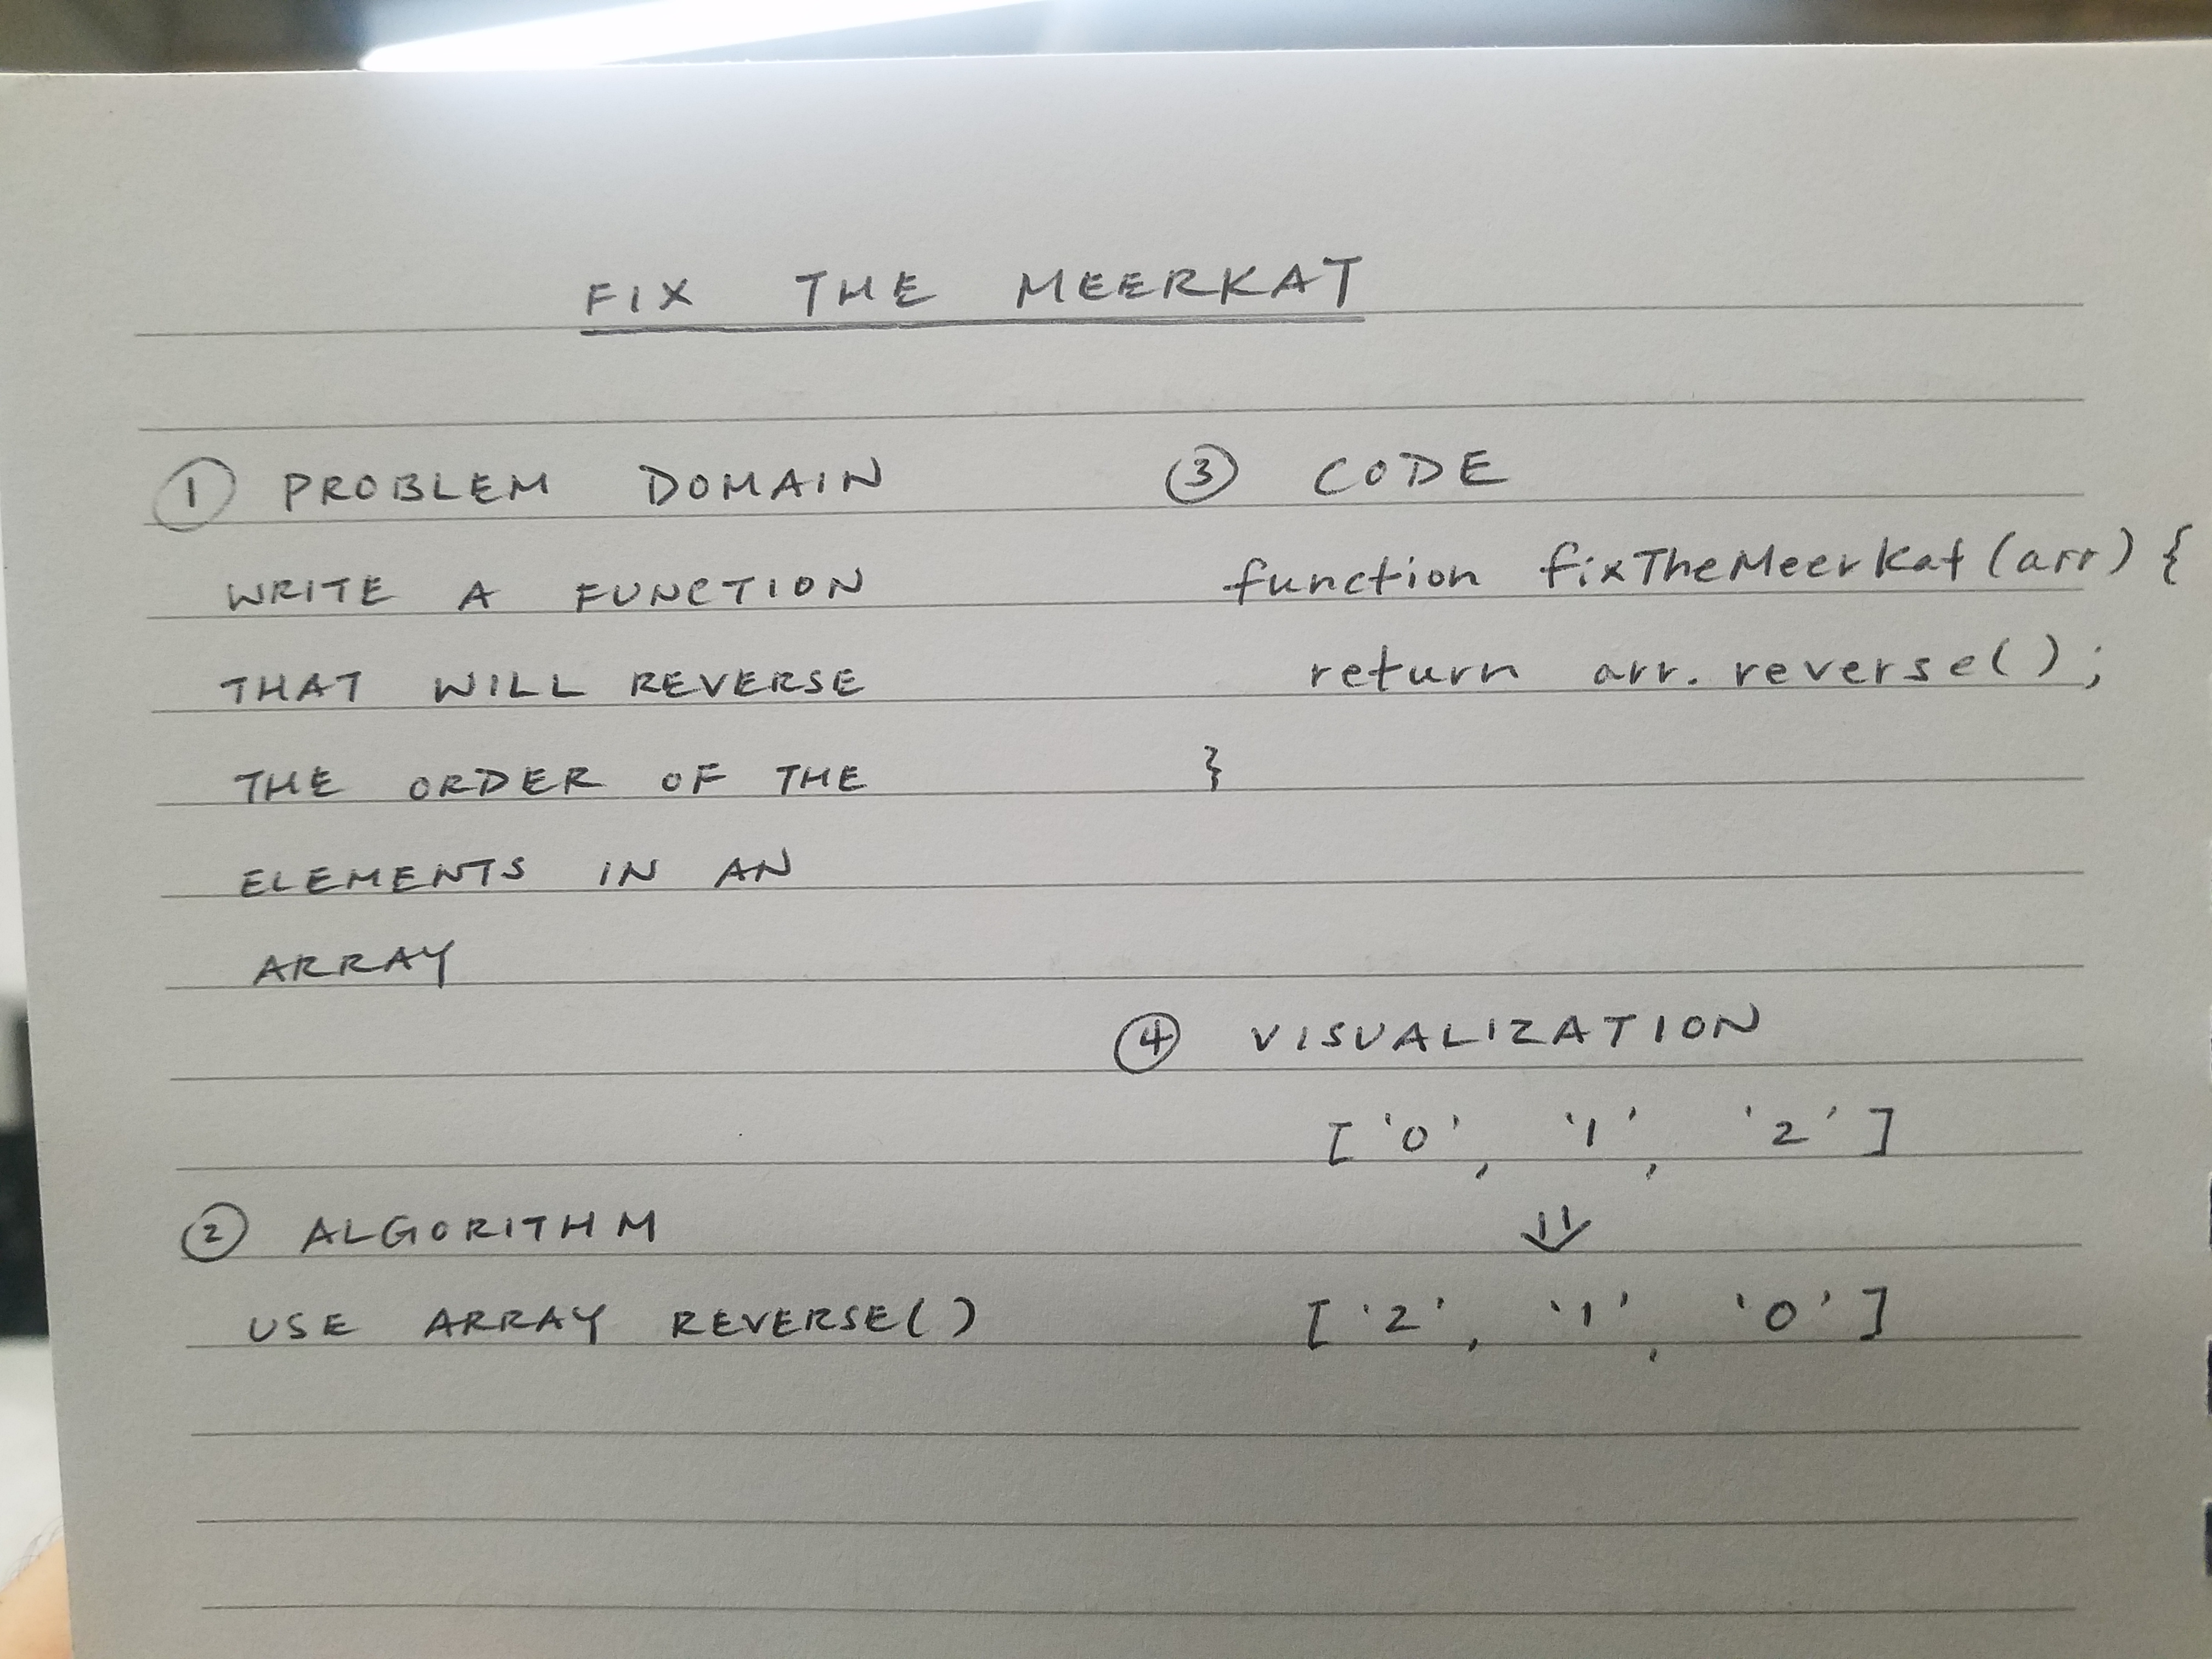 FIX THE MEERKAT
① PROBLEM DOMAIN
WRITE A FUNCTION
THAT WILL REVERSE
THE ORDER OF THE
ELEMENTS IN AN
ARRAY
② ALGORITHM
USE ARRAY REVERSE()
③ CODE
function fixTheMeerkat(arr) {
return arr.reverse();
}
④ VISUALIZATION
['0', '1', '2']
⇓
['2', '1', '0']